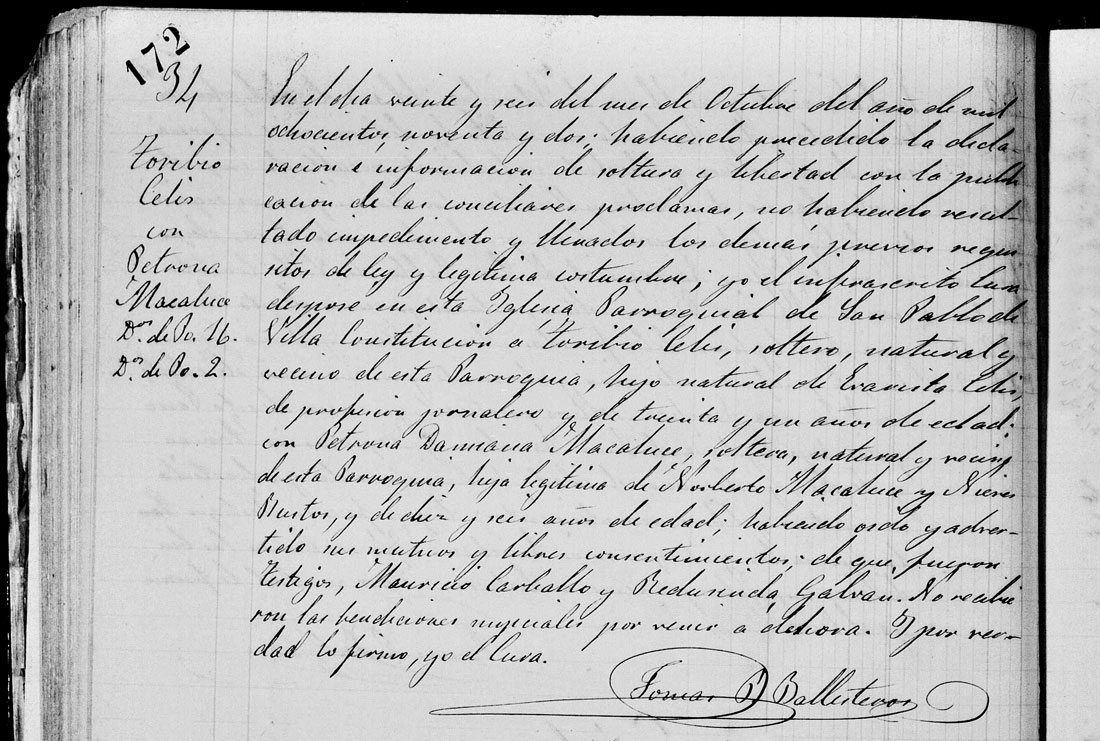 172
34
Toribio
Celis
con
Petrona
Macaluce
Dros. de Po. 16.
Dros. de Po. 2.
En el dia veinte y seis del mes de Octubre del año de mil
ochocientos noventa y dos; habiendo precedido la decla-
racion e informacion de soltura y libertad con la publi
cacion de las conciliares proclamas, no habiendo resul-
tado impedimento y llenados los demás previos requi
sitos de ley y legitima costumbre; yo el infrascrito Cura
despose en esta Iglesia Parroquial de San Pablo de
Villa Constitucion a Toribio Celis, soltero, natural y
vecino de esta Parroquia, hijo natural de Evarista Celis,
de profesion jornalero y de treinta y un años de edad;
con Petrona Damiana Macaluce, soltera, natural y vecina
de esta Parroquia, hija legitima de Norberto Macaluce y Nieves
Bustos, y de diez y seis años de edad; habiendo oido y adver-
tido sus mutuos y libres consentimientos; de que fueron
testigos, Mauricio Carballo y Redusinda Galvan. No recibie
ron las bendiciones nupciales por venir a deshora. I por ver-
dad lo firmo, yo el Cura.
Tomas D Ballesteros